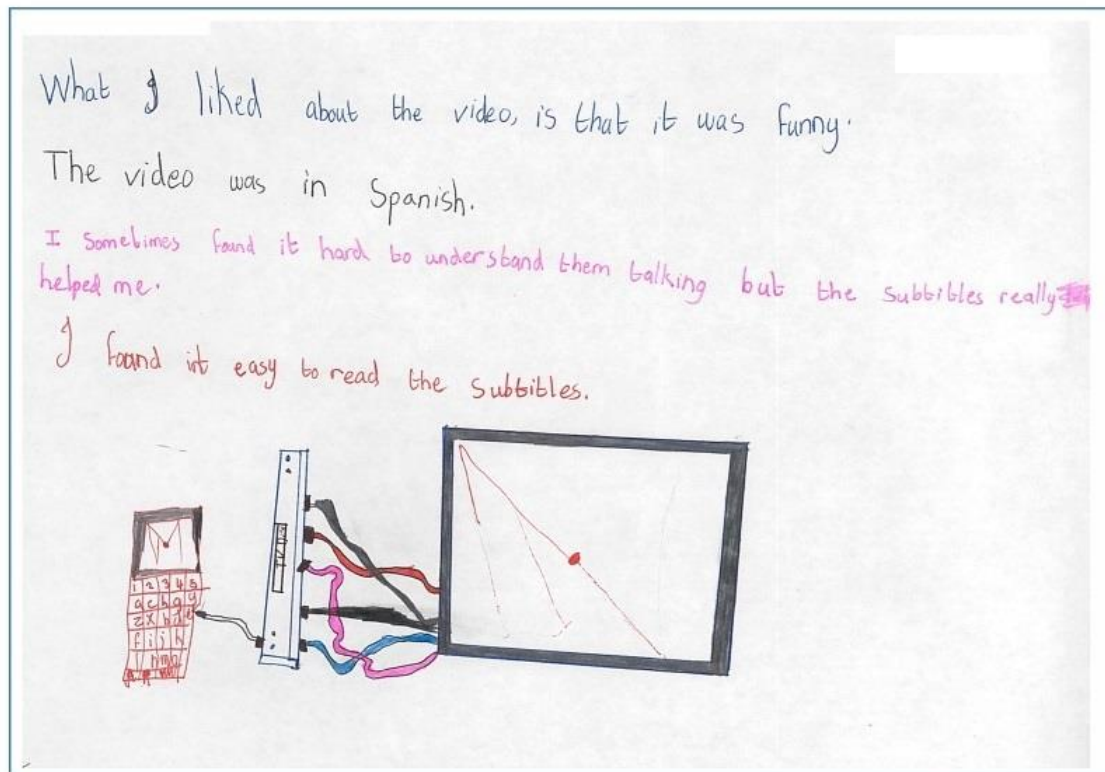 What I liked about the video, is that it was funny.
The video was in Spanish.
I sometimes found it hard to understand them talking but the subtitles really
helped me.
I found it easy to read the subtitles.
1 2 3 4 5